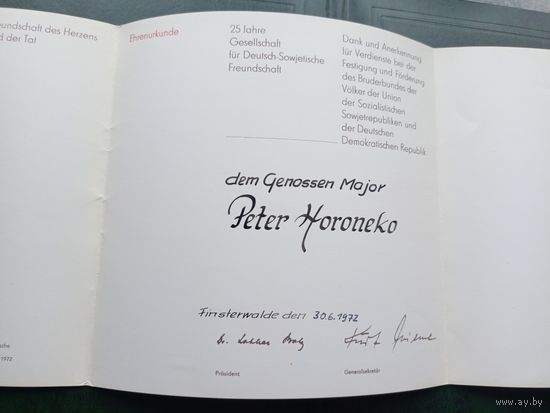 undschaft des Herzens
d der Tat
Ehrenurkunde
25 Jahre
Gesellschaft
für Deutsch-Sowjetische
Freundschaft
Dank und Anerkennung
für Verdienste bei der
Festigung und Förderung
des Bruderbundes der
Völker der Union
der Sozialistischen
Sowjetrepubliken und
der Deutschen
Demokratischen Republik
dem Genossen Major
Peter Horoneko
Finsterwalde den 30.6.1972
Dr. Lothar
Kurt
Präsident
Generalsekretär
sche
1972
www.ay.by